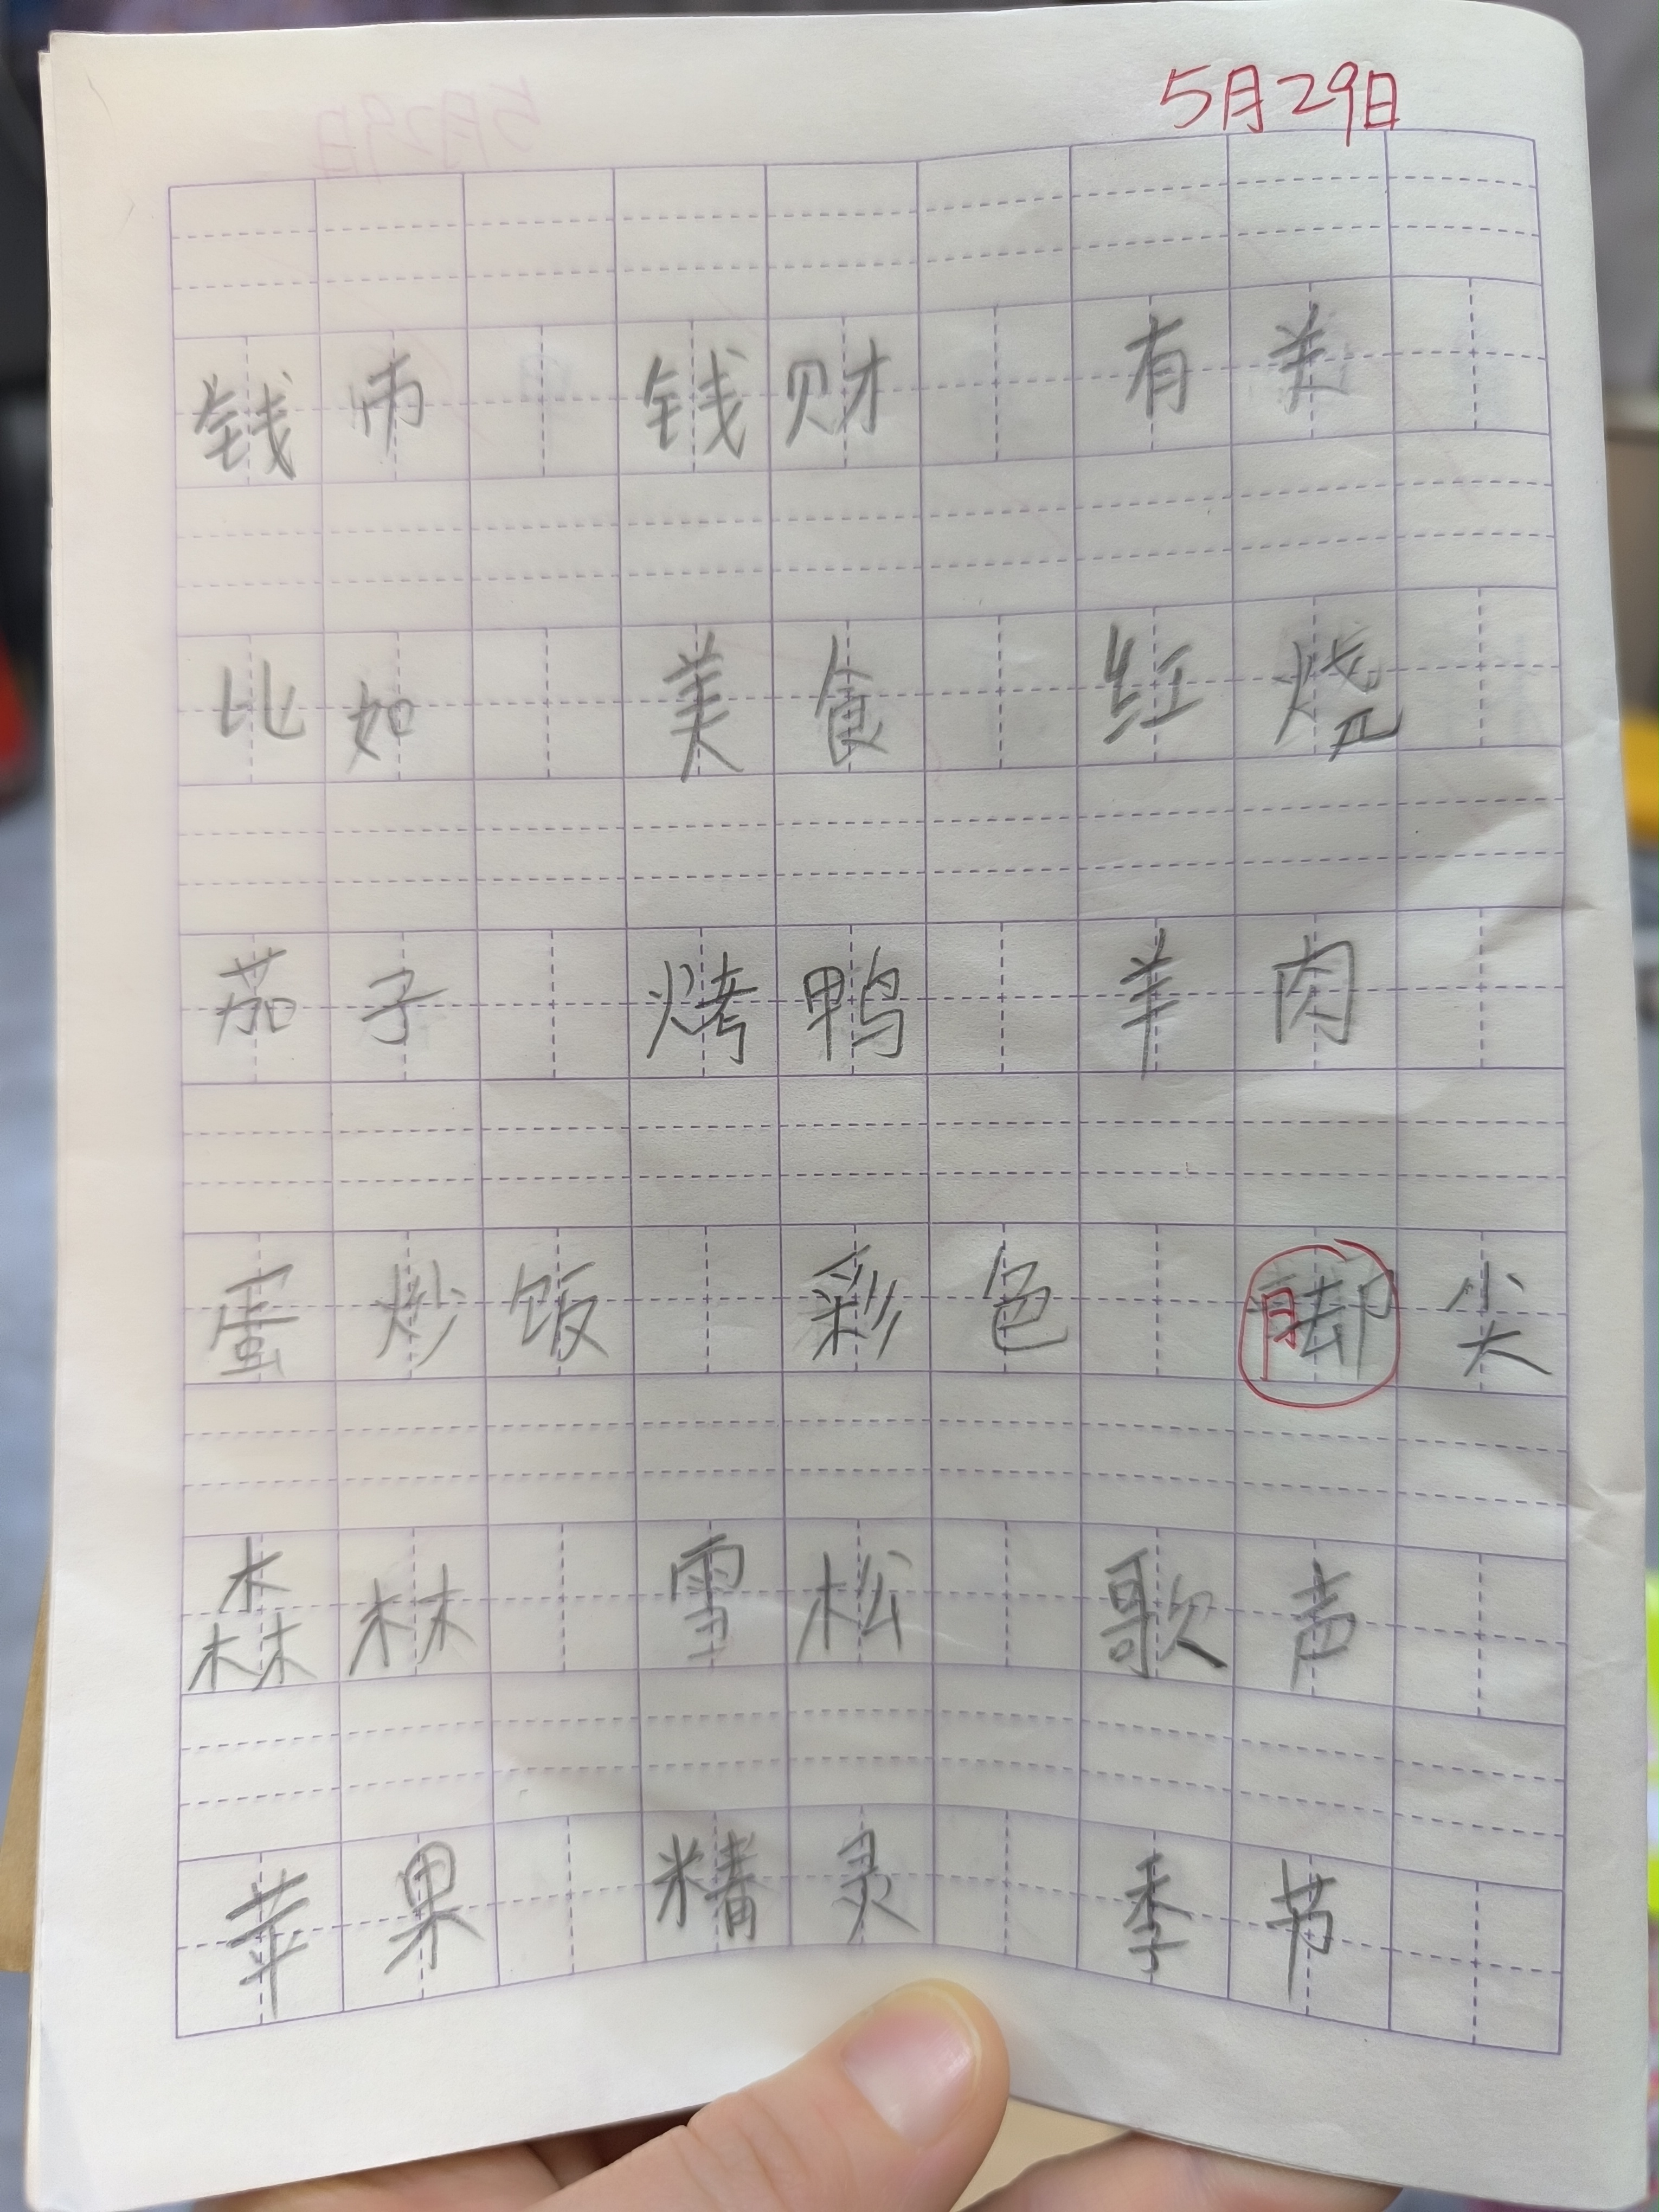 5月29日
钱币 钱财 有关
比如 美食 红烧
茄子 烤鸭 羊肉
蛋炒饭 彩色 脚尖
森林 雪松 歌声
苹果 精灵 季节